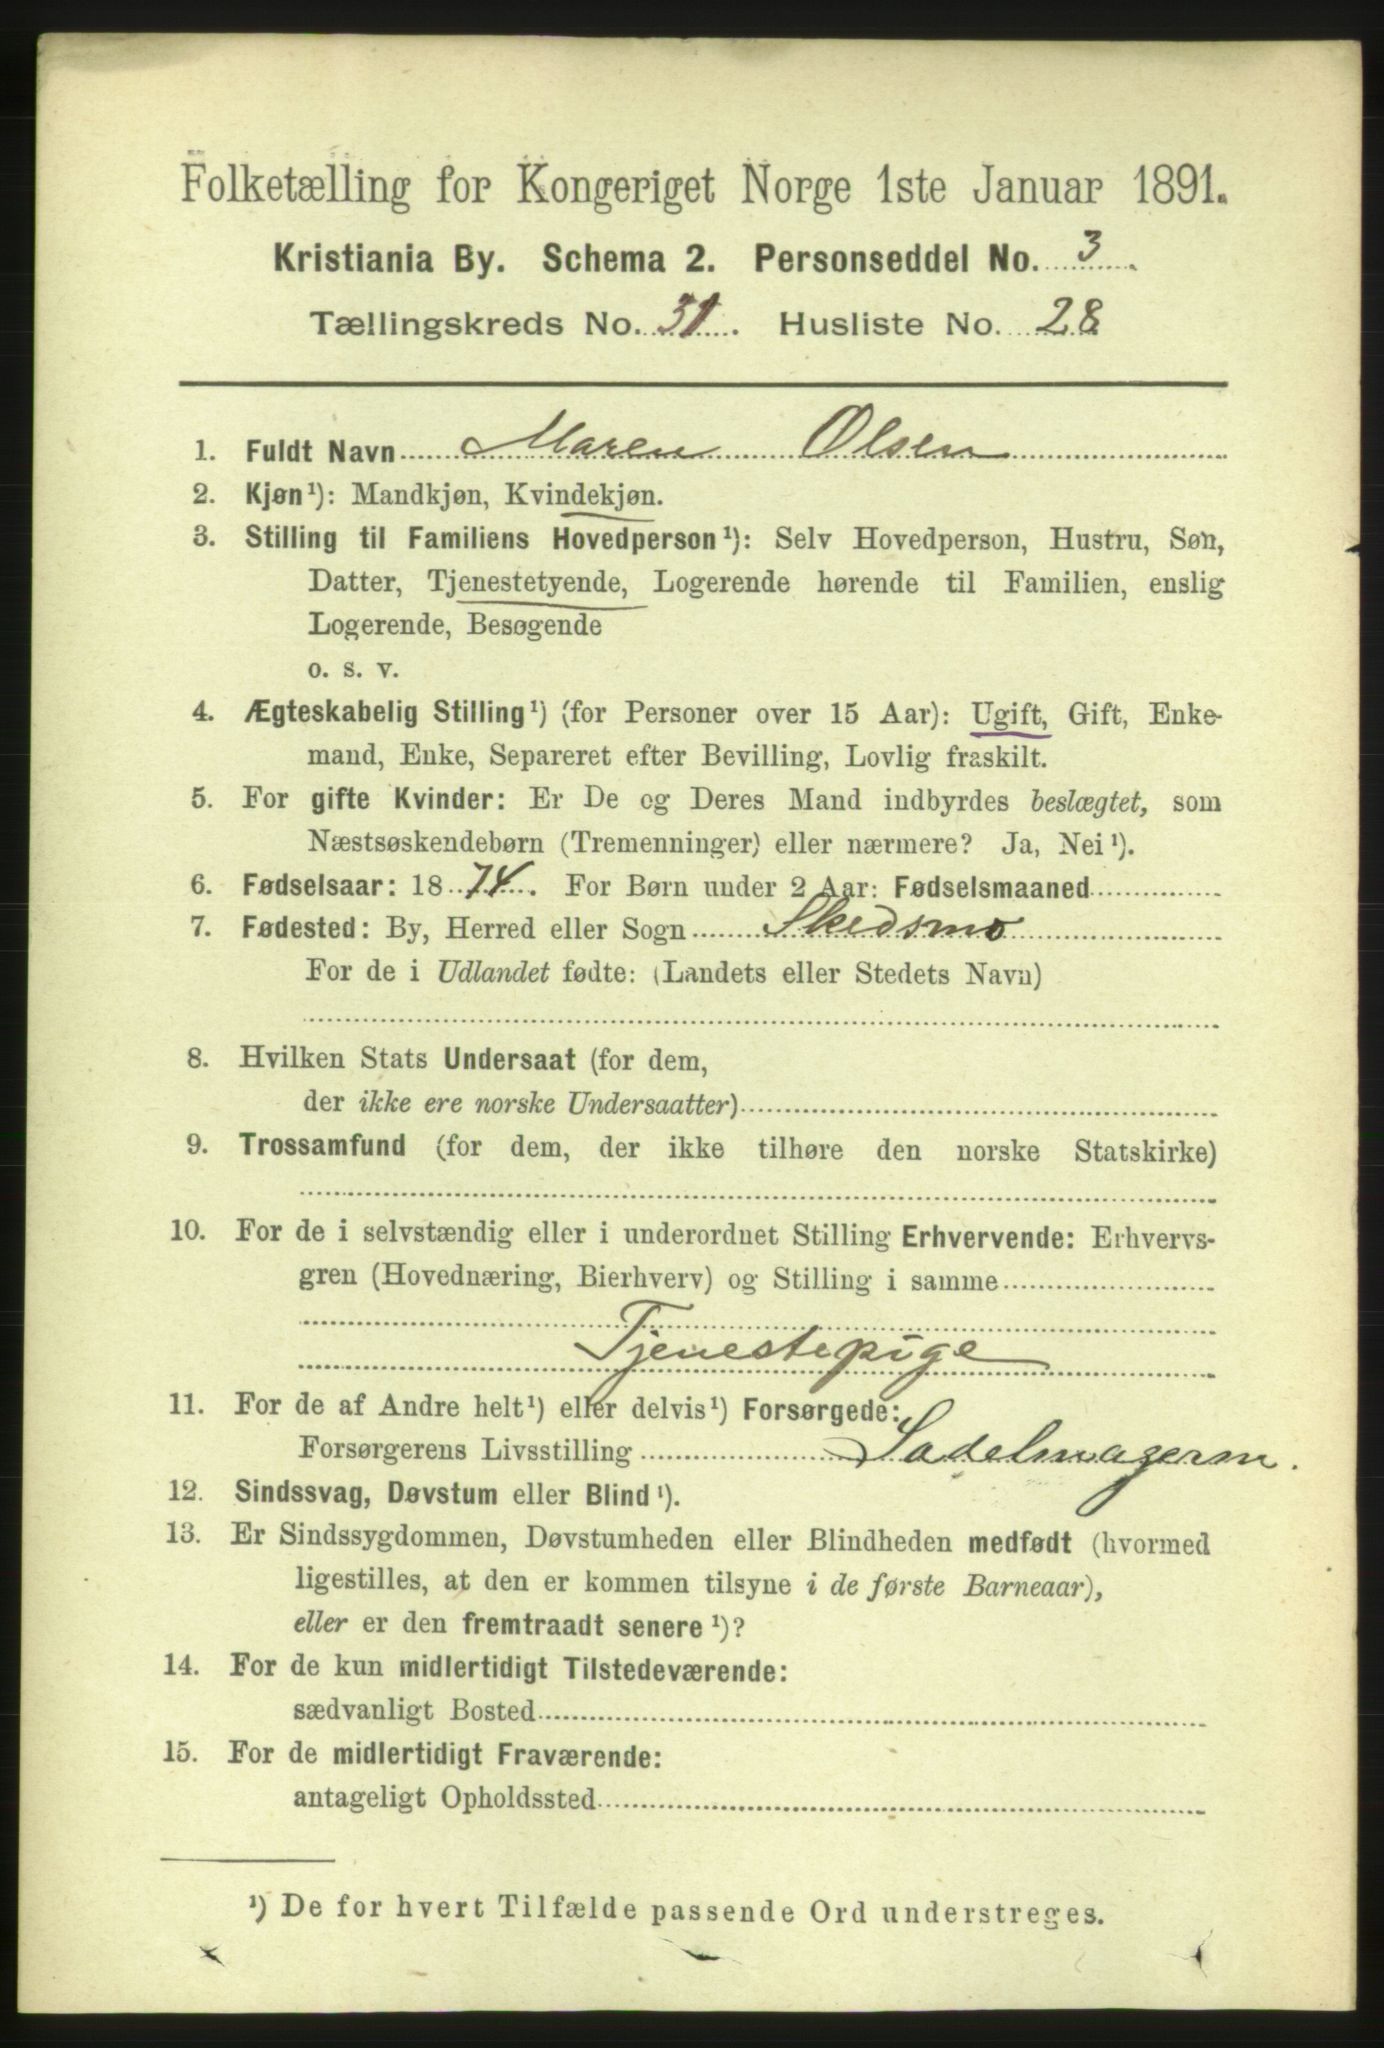 Folketælling for Kongeriget Norge 1ste Januar 1891.
Kristiania By. Schema 2. Personseddel No. 3
Tællingskreds No. 31. Husliste No. 28
1. Fuldt Navn Maren Olsen
2. Kjøn¹): Mandkjøn, Kvindekjøn.
3. Stilling til Familiens Hovedperson¹): Selv Hovedperson, Hustru, Søn,
Datter, Tjenestetyende, Logerende hørende til Familien, enslig
Logerende, Besøgende
o. s. v.
4. Ægteskabelig Stilling¹) (for Personer over 15 Aar): Ugift, Gift, Enke-
mand, Enke, Separeret efter Bevilling, Lovlig fraskilt.
5. For gifte Kvinder: Er De og Deres Mand indbyrdes beslægtet, som
Næstsøskendebørn (Tremenninger) eller nærmere? Ja, Nei¹).
6. Fødselsaar: 1874. For Børn under 2 Aar: Fødselsmaaned
7. Fødested: By, Herred eller Sogn Skedsmo
For de i Udlandet fødte: (Landets eller Stedets Navn)
8. Hvilken Stats Undersaat (for dem,
der ikke ere norske Undersaatter)
9. Trossamfund (for dem, der ikke tilhøre den norske Statskirke)
10. For de i selvstændig eller i underordnet Stilling Erhvervende: Erhvervs-
gren (Hovednæring, Bierhverv) og Stilling i samme
Tjenestepige
11. For de af Andre helt¹) eller delvis¹) Forsørgede:
Forsørgerens Livsstilling Sadelmagerm.
12. Sindssvag, Døvstum eller Blind¹).
13. Er Sindssygdommen, Døvstumheden eller Blindheden medfødt (hvormed
ligestilles, at den er kommen tilsyne i de første Barneaar),
eller er den fremtraadt senere¹)?
14. For de kun midlertidigt Tilstedeværende:
sædvanligt Bosted
15. For de midlertidigt Fraværende:
antageligt Opholdssted
¹) De for hvert Tilfælde passende Ord understreges.